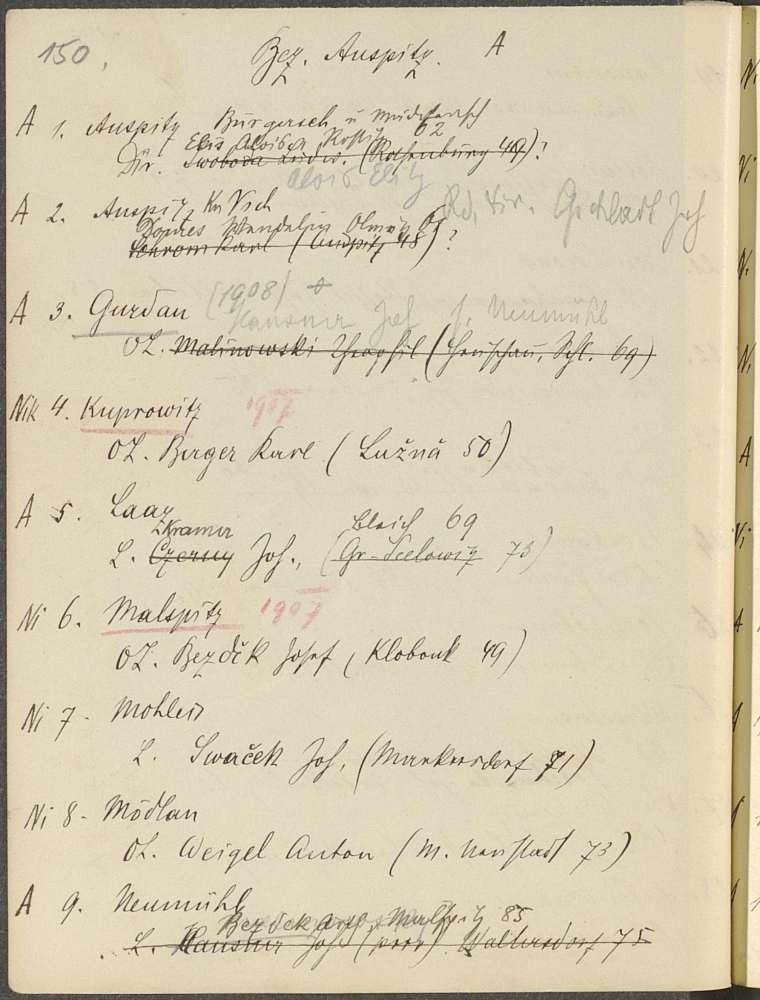 150.
Bez. Auspitz. A
A 1. Auspitz Bürgersch. u
Elis Alois Rossitz 62
Dir. Swoboda Ludw. (Rothenburg 49)?
Alois Elis
A 2. Auspitz Kn Vsch
Wandalin Olmütz 61
Schrom Karl (Auspitz 48)?
Rd. Dir. Joh
A 3. Gurdau (1908)
Hausner Joh f. Neumühl
OL. Malinowski Theophil (Hruschau, Schl. 69)
Nik 4. Kuprowitz 1907
OL. Berger Karl (Lužná 50)
A 5. Laag
Kramer Bleich 69
L. Czerny Joh., (Gr-Seelowitz 75)
Ni 6. Malspitz 1907
OL. Bezděk Josef (Klobouk 49)
Ni 7. Mohleis
L. Swaček Joh. (Markersdorf 71)
Ni 8. Mödlau
OL. Weigel Anton (M. Neustadt 73)
A 9. Neumühl
Bezdek Malspitz 85
L. Hausner Joh (prov) Waltersdorf 75